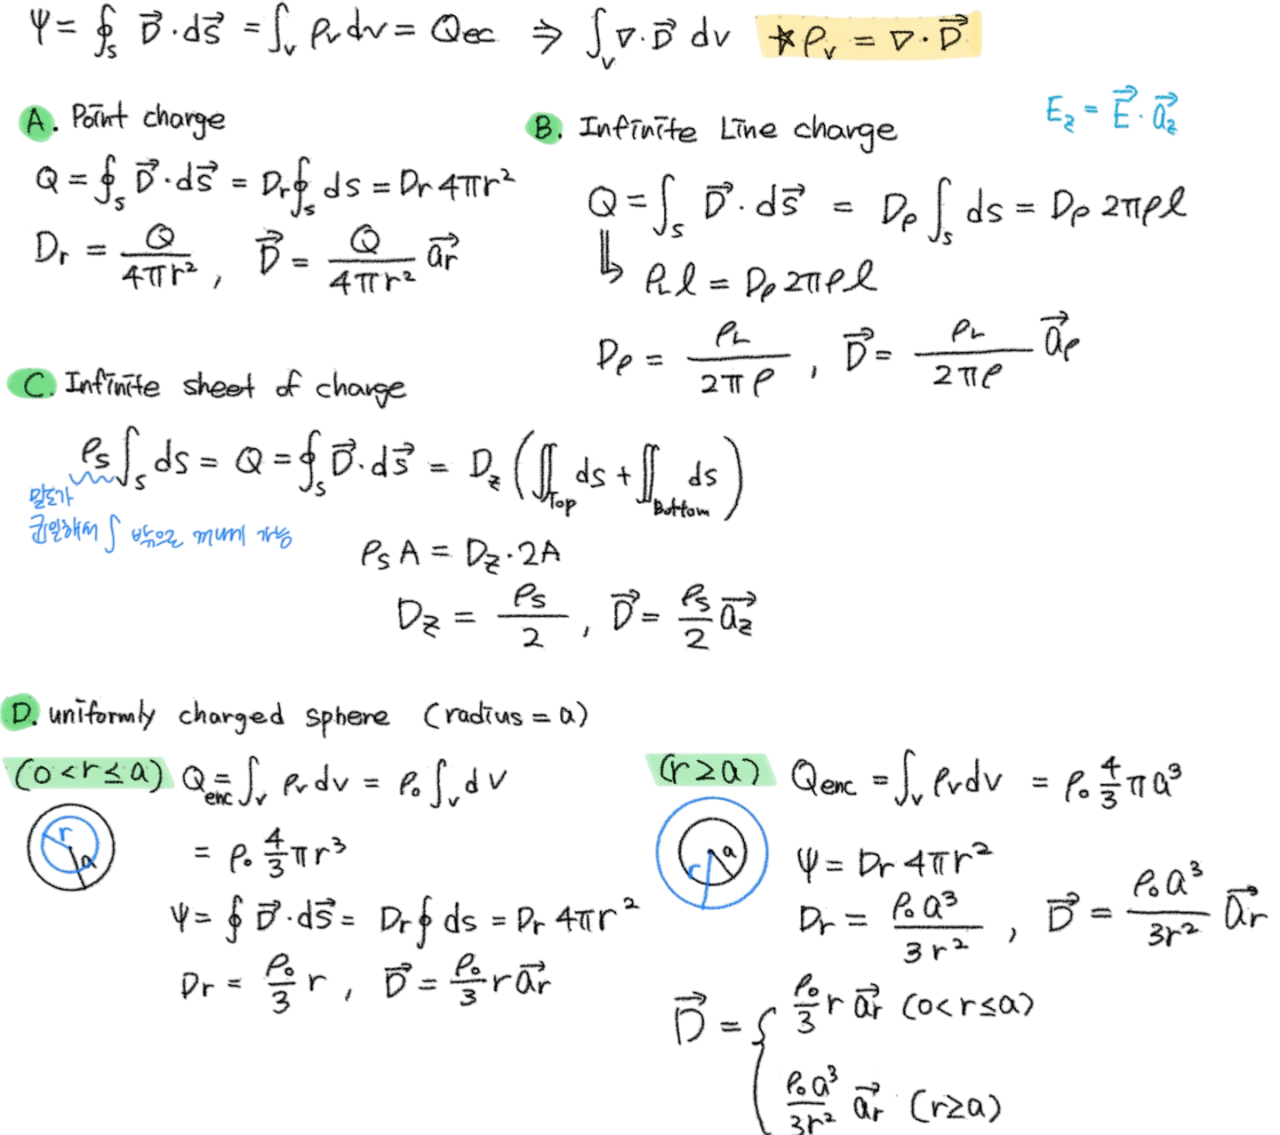 Ψ = ∮_S D⃗·dS⃗ = ∫_V ρ_v dv = Q_ec ⇒ ∫_V ∇·D⃗ dv ★ρ_v = ∇·D⃗
E_z = E⃗·a⃗_z
A. Point charge
Q = ∮_S D⃗·dS⃗ = D_r ∮_S ds = D_r 4πr²
D_r = Q/(4πr²), D⃗ = Q/(4πr²) a⃗_r
B. Infinite Line charge
Q = ∫_S D⃗·dS⃗ = D_ρ ∫_S ds = D_ρ 2πρl
↳ ρ_L l = D_ρ 2πρl
D_ρ = ρ_L/(2πρ), D⃗ = ρ_L/(2πρ) a⃗_ρ
C. Infinite sheet of charge
ρ_S ∫_S ds = Q = ∮_S D⃗·dS⃗ = D_z (∬_Top ds + ∬_Bottom ds)
밀도가
균일해서 ∫ 밖으로 꺼내기 가능
ρ_S A = D_z·2A
D_z = ρ_S/2, D⃗ = ρ_S/2 a⃗_z
D. uniformly charged sphere (radius = a)
(0<r≤a) Q_enc = ∫_V ρ_v dv = ρ₀ ∫_V dV
r
a
= ρ₀ 4/3 πr³
Ψ = ∮ D⃗·dS⃗ = D_r ∮ ds = D_r 4πr²
D_r = ρ₀/3 r, D⃗ = ρ₀/3 r a⃗_r
(r≥a) Q_enc = ∫_V ρ_v dv = ρ₀ 4/3 πa³
a
r
Ψ = D_r 4πr²
D_r = ρ₀a³/(3r²), D⃗ = ρ₀a³/(3r²) a⃗_r
D⃗ = { ρ₀/3 r a⃗_r (0<r≤a)
ρ₀a³/(3r²) a⃗_r (r≥a)